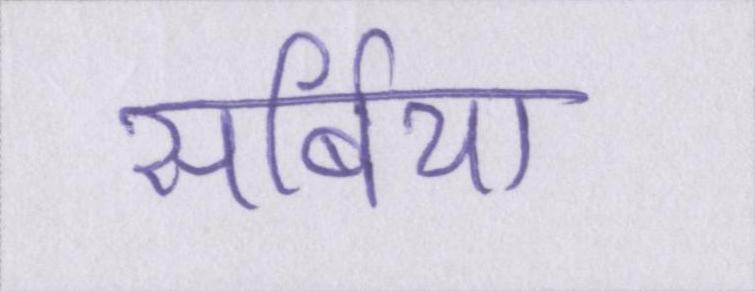 सर्बिया